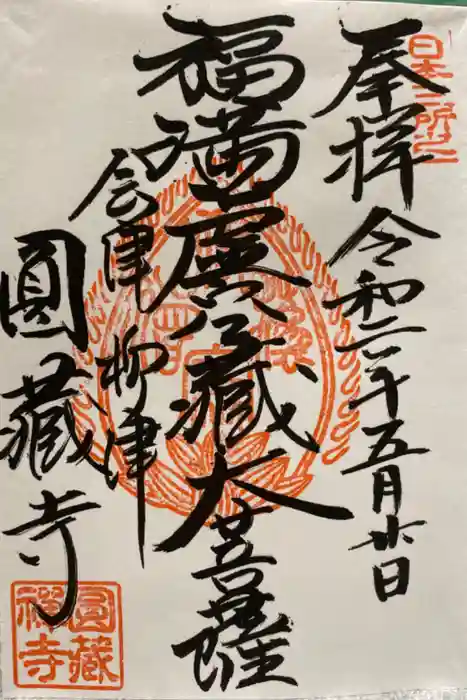 奉拝
令和二年五月廿日
福満虚空藏大菩薩
会津柳津
圓藏寺
圓藏
禅寺